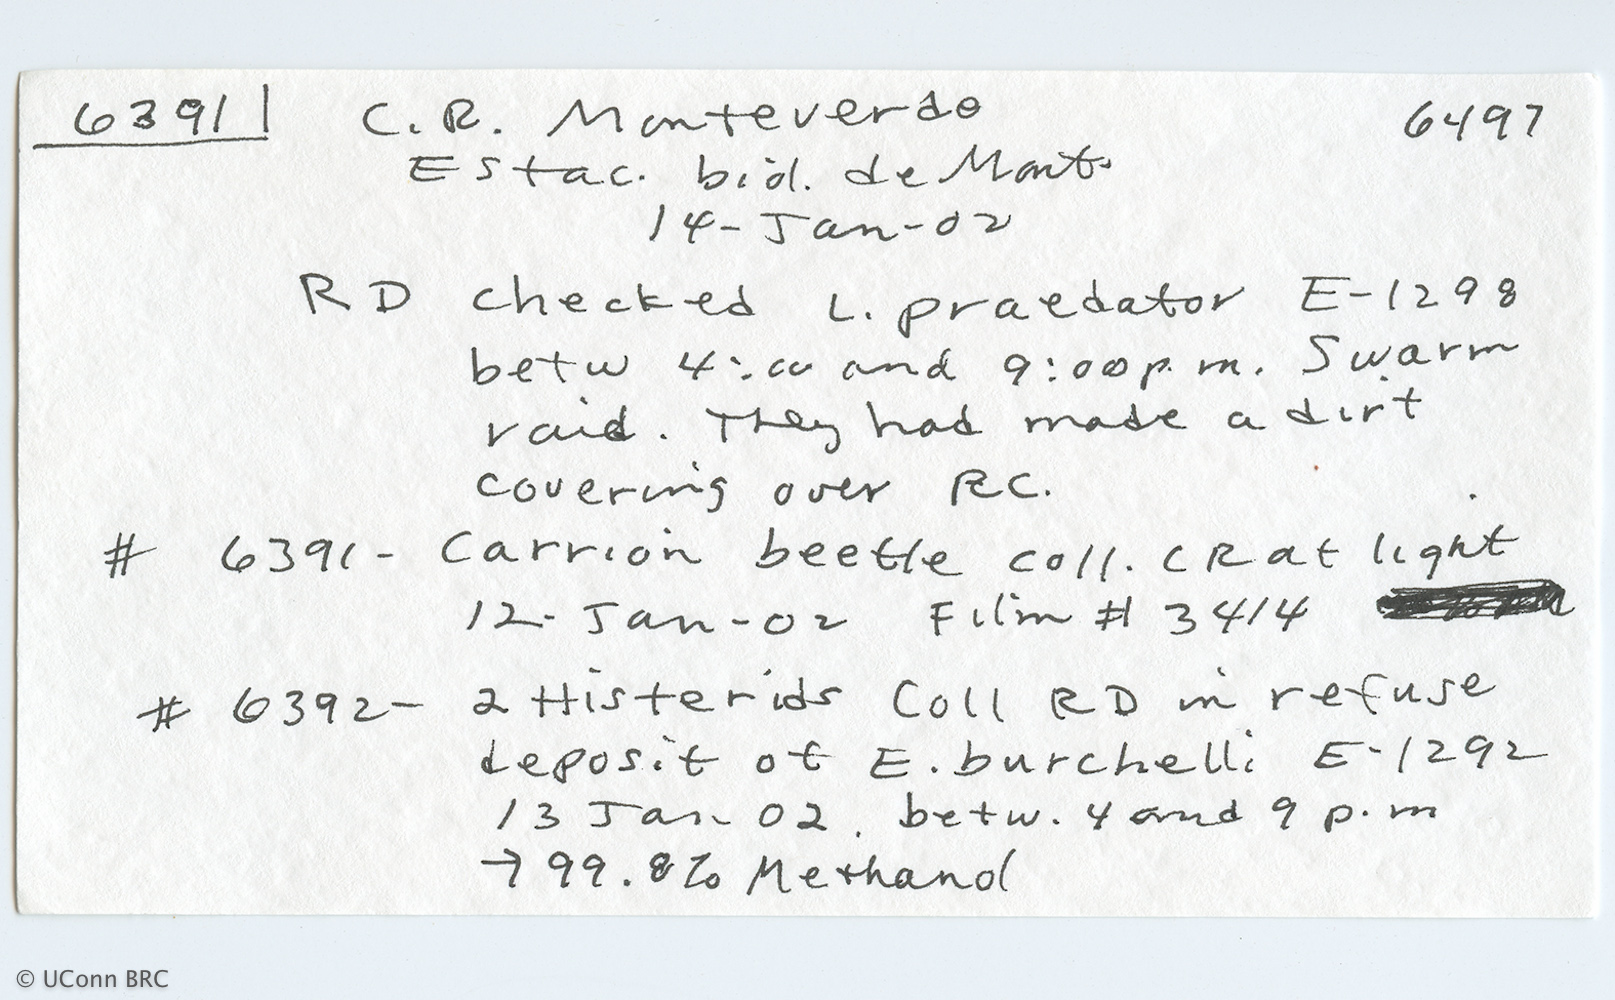 6391 C.R. Monteverde 6497
Estac. biol. de Mont.
14-Jan-02
RD checked L. praedator E-1298
betw 4:00 and 9:00 p.m. Swarm
raid. They had made a dirt
covering over RC.
# 6391- Carrion beetle coll. CR at light
12-Jan-02 Film # 3414
# 6392- 2 Histerids Coll RD in refuse
deposit of E. burchelli E-1292
13 Jan 02. betw. 4 and 9 p.m
→ 99.8% Methanol
© UConn BRC